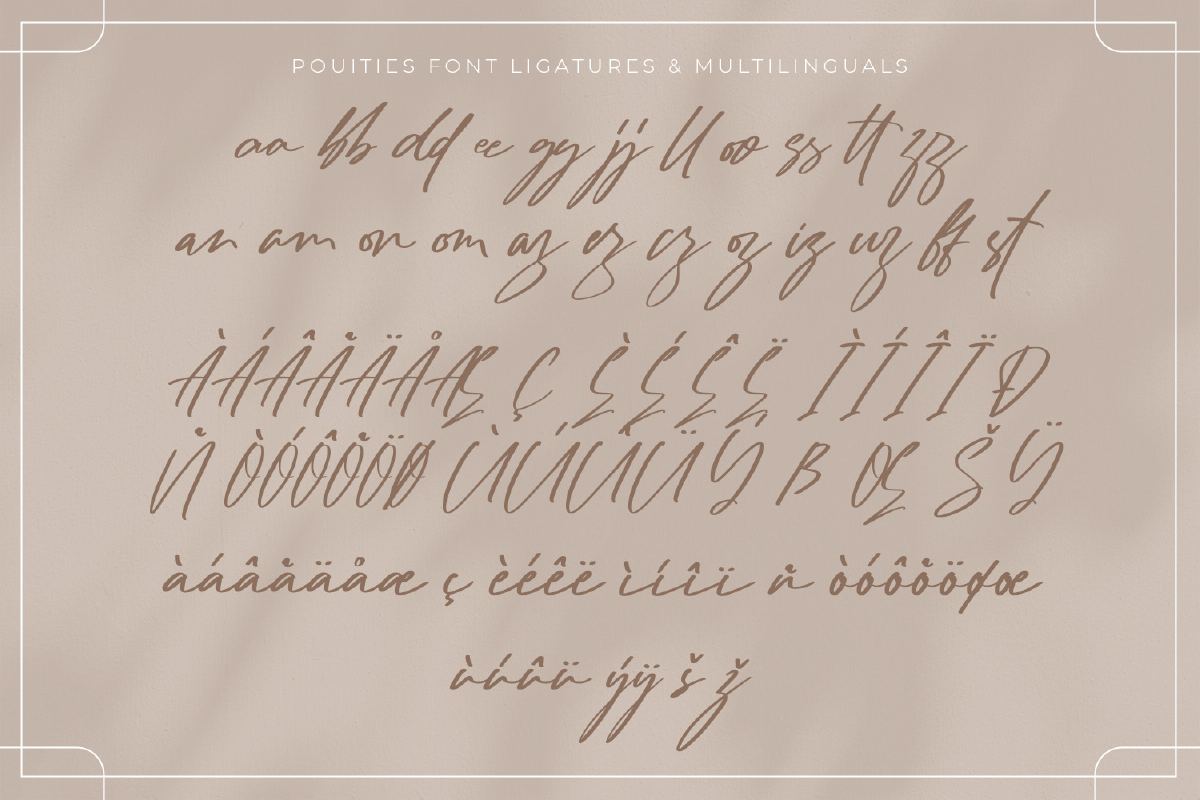 POUITIES FONT LIGATURES & MULTILINGUALS
aa bb dd ee gg jj ll oo ss tt zz
an am on om az ez cz oz iz uz ff st
ÀÁÂÃÄÅÆ Ç ÈÉÊË ÌÍÎÏ Ð
Ñ ÒÓÔÕÖØ ÙÚÛÜÝ ß Œ Š Ÿ
àáâãäåæ ç èéêë ìíîï ñ òóôõöøœ
ùúûü ýÿ š ž